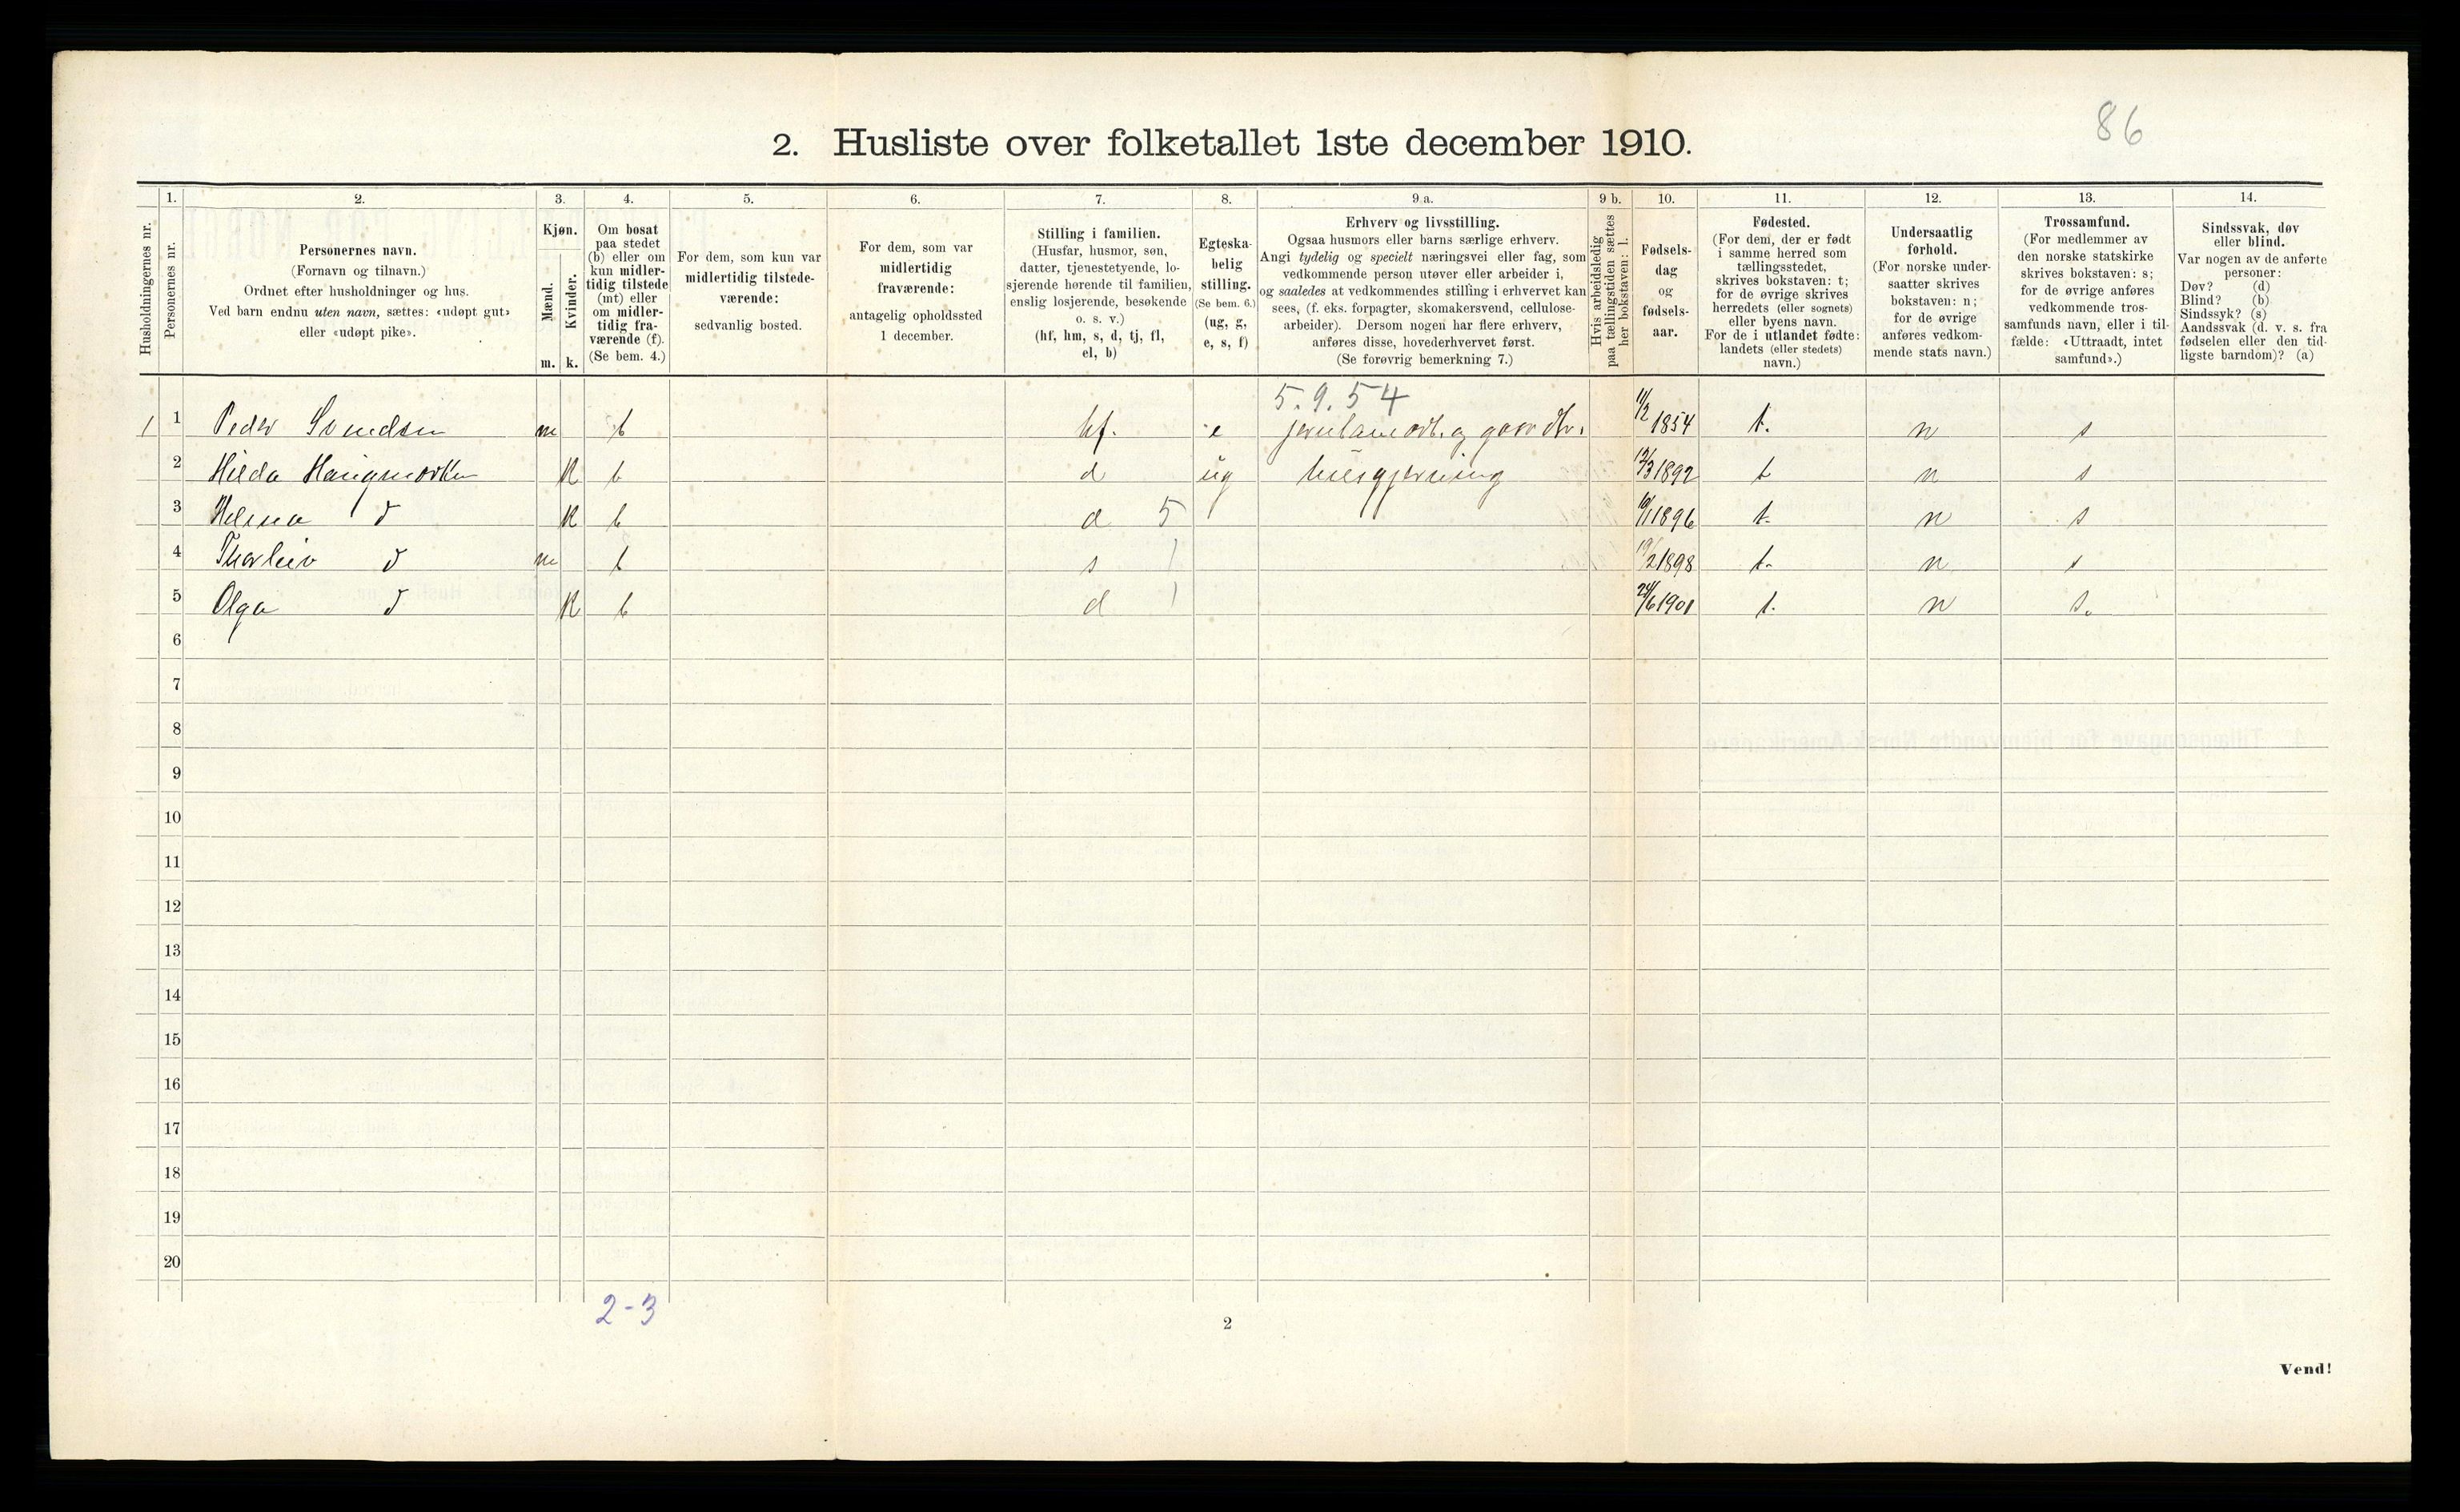 86
2. Husliste over folketallet 1ste december 1910.
Husholdningernes nr.
1.
Personernes nr.
2.
Personernes navn.
(Fornavn og tilnavn.)
Ordnet efter husholdninger og hus.
Ved barn endnu uten navn, sættes: «udøpt gut»
eller «udøpt pike».
3.
Kjøn.
Mænd.
Kvinder.
m. k.
4.
Om bosat
paa stedet
(b) eller om
kun midler-
tidig tilstede
(mt) eller
om midler-
tidig fra-
værende (f).
(Se bem. 4.)
5.
For dem, som kun var
midlertidig tilstede-
værende:
sedvanlig bosted.
6.
For dem, som var
midlertidig
fraværende:
antagelig opholdssted
1 december.
7.
Stilling i familien.
(Husfar, husmor, søn,
datter, tjenestetyende, lo-
sjerende hørende til familien,
enslig losjerende, besøkende
o. s. v.)
(hf, hm, s, d, tj, fl,
el, b)
8.
Egteska-
belig
stilling.
(Se bem. 6.)
(ug, g,
e, s, f)
9 a.
Erhverv og livsstilling.
Ogsaa husmors eller barns særlige erhverv.
Angi tydelig og specielt næringsvei eller fag, som
vedkommende person utøver eller arbeider i,
og saaledes at vedkommendes stilling i erhvervet kan
sees, (f. eks. forpagter, skomakersvend, cellulose-
arbeider). Dersom nogen har flere erhverv,
anføres disse, hovederhvervet først.
(Se forøvrig bemerkning 7.)
9 b.
Hvis arbeidsledig
paa tællingstiden sættes
her bokstaven: l.
10.
Fødsels-
dag
og
fødsels-
aar.
11.
Fødested.
(For dem, der er født
i samme herred som
tællingsstedet,
skrives bokstaven: t;
for de øvrige skrives
herredets (eller sognets)
eller byens navn.
For de i utlandet fødte:
landets (eller stedets)
navn.)
12.
Undersaatlig
forhold.
(For norske under-
saatter skrives
bokstaven: n;
for de øvrige
anføres vedkom-
mende stats navn.)
13.
Trossamfund.
(For medlemmer av
den norske statskirke
skrives bokstaven: s;
for de øvrige anføres
vedkommende tros-
samfunds navn, eller i til-
fælde: «Uttraadt, intet
samfund».)
14.
Sindssvak, døv
eller blind.
Var nogen av de anførte
personer:
Døv? (d)
Blind? (b)
Sindssyk? (s)
Aandssvak (d. v. s. fra
fødselen eller den tid-
ligste barndom)? (a)
5.9.54
1 1 Peder m b hf. e og 11/2 1854 t. n s
2 Hilda K b d ug husgjerning 12/3 1892 t n s
3 d K b d 5 10/1 1896 t. n s
4 Thorleiv d m b s 19/2 1898 t. n s
5 Olga d K b d 24/6 1901 t. n s.
6
7
8
9
10
11
12
13
14
15
16
17
18
19
20
2-3
2
Vend!